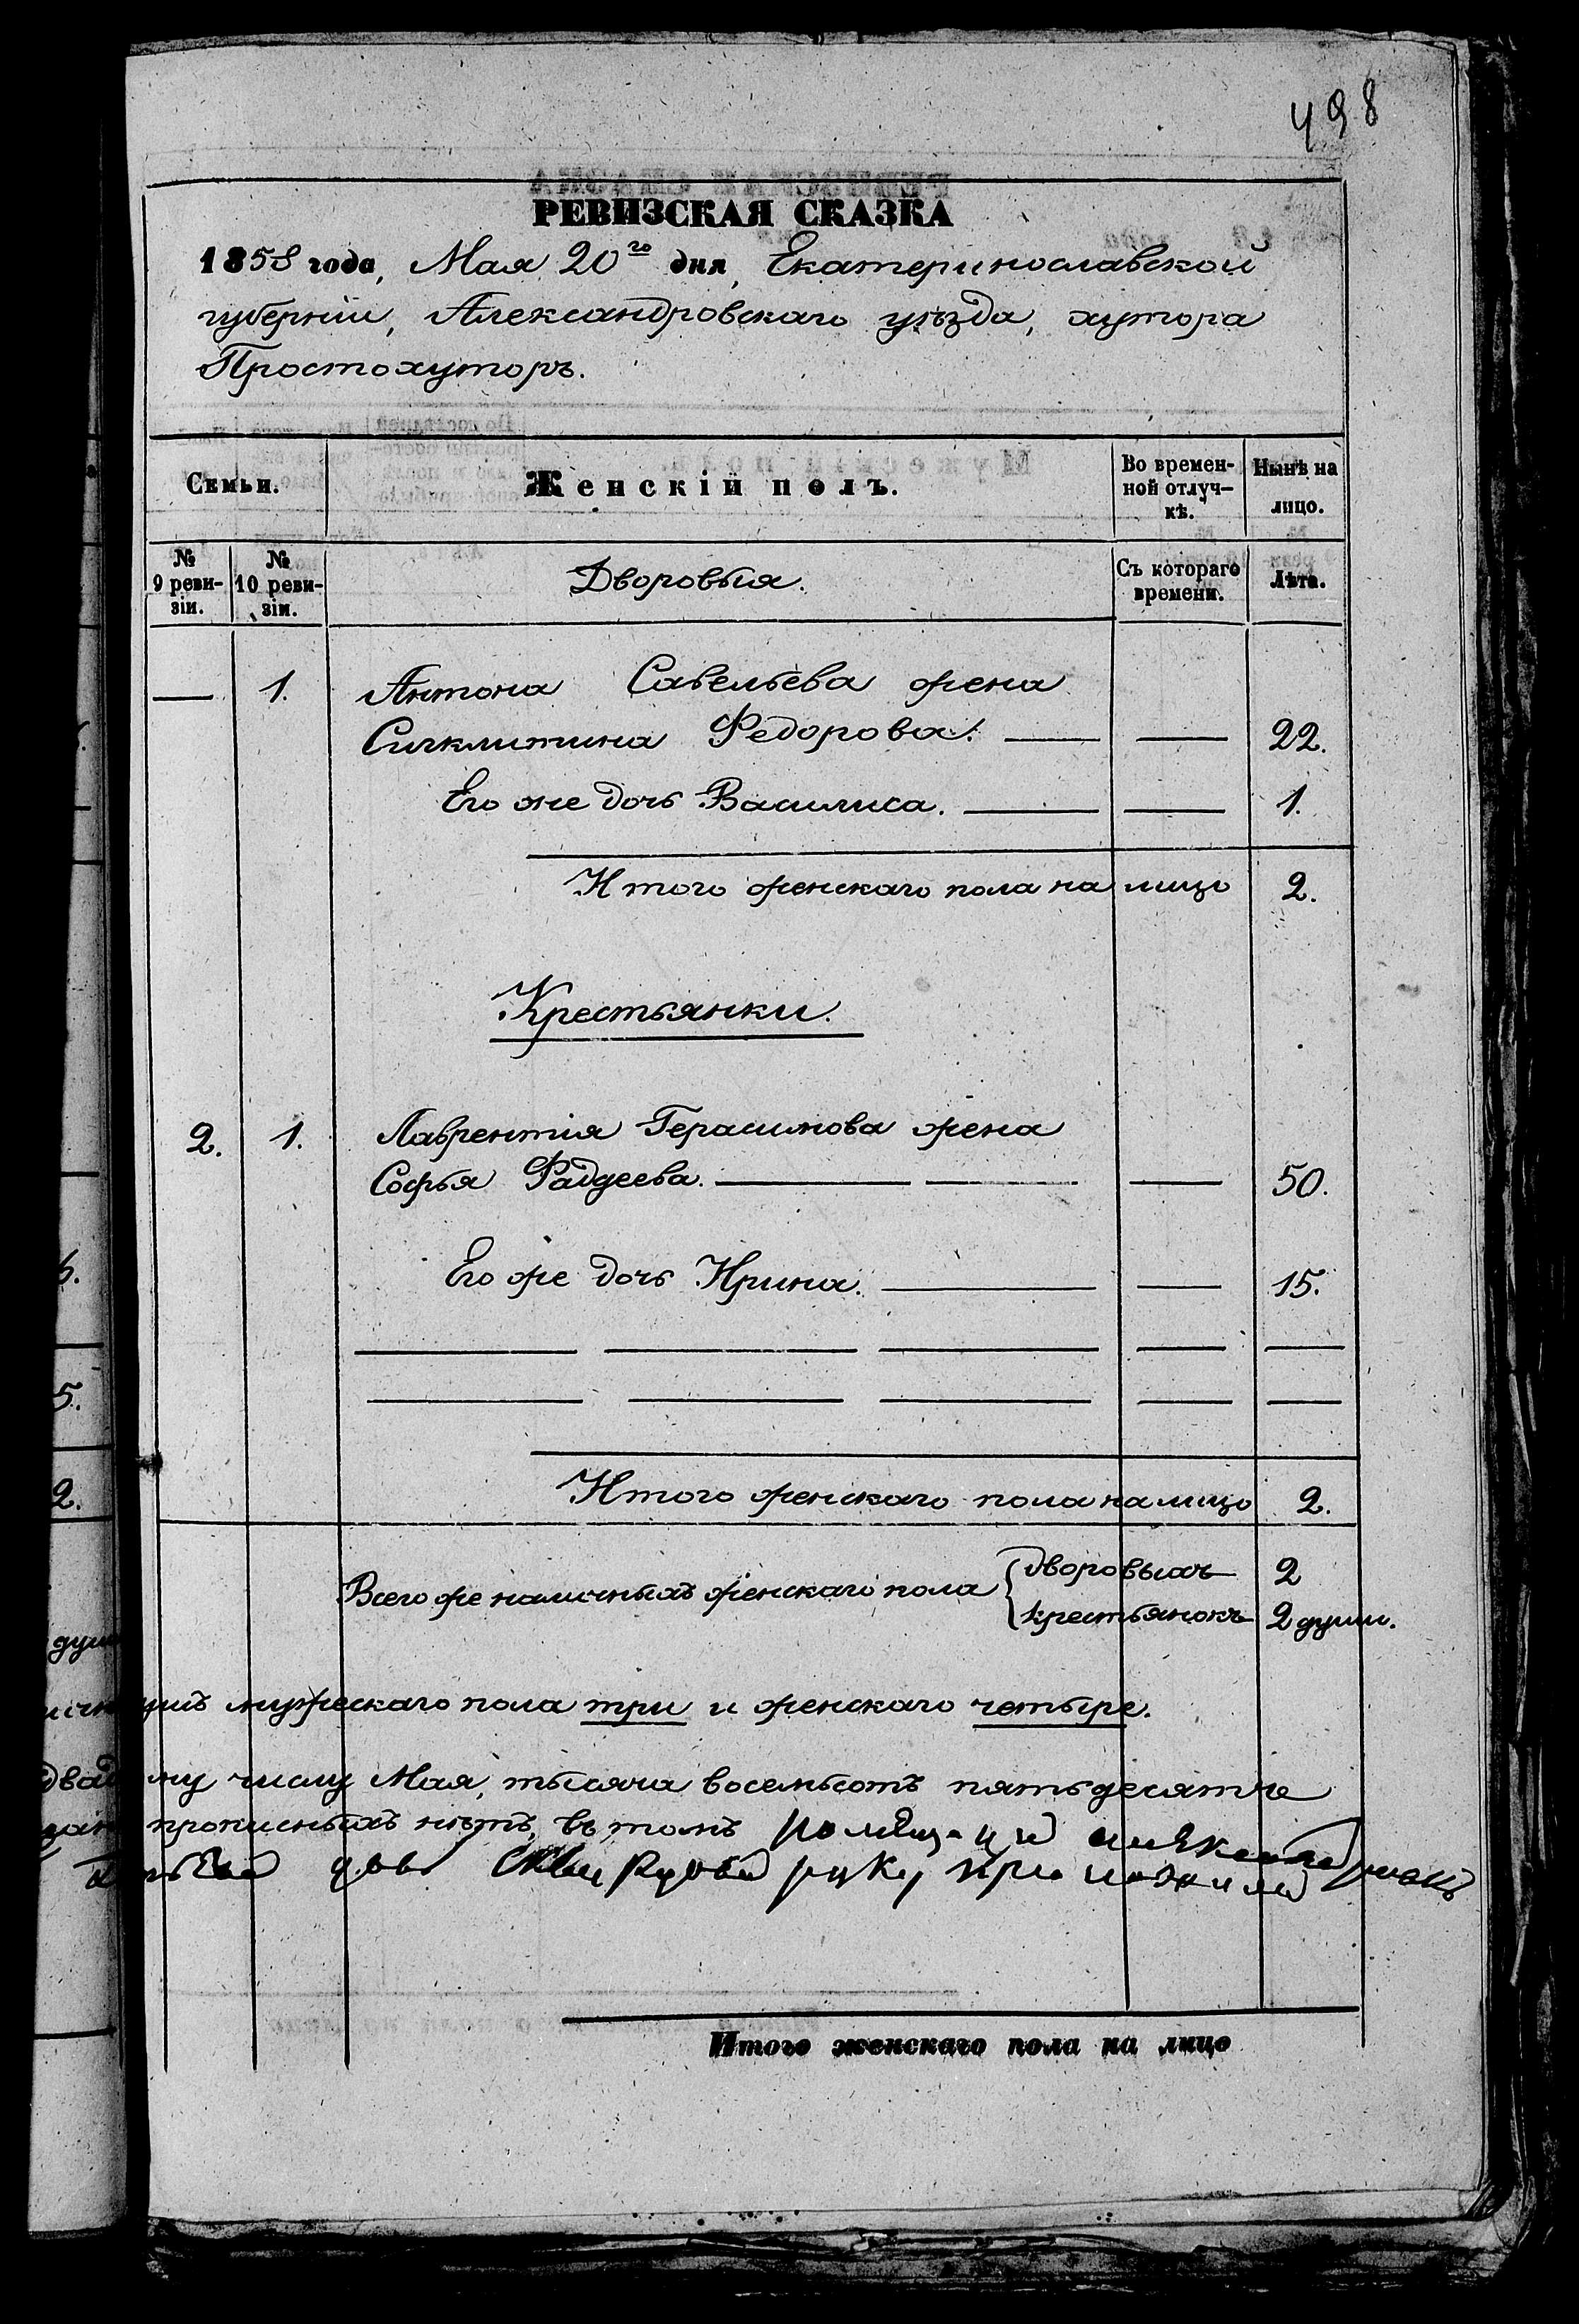 498
РЕВИЗСКАЯ СКАЗКА
1858 года, Мая 20го дня, Екатеринославской
губерніи, Александровскаго уѣзда, хутора
Простохуторъ.
Семьи.
Женскій полъ.
Во времен-
ной отлуч-
кѣ.
Нынѣ на
лицо.
№
9 реви-
зіи.
№
10 реви-
зіи.
Дворовыя.
Съ котораго
времени.
Лѣта.
— 1. Антона Савельева жена
Сиклитина Федорова. — — 22.
Его же дочь Василиса. — — 1.
Итого женскаго пола на лицо 2.
Крестьянки.
2. 1. Лаврентія Герасимова жена
Софья Фаддеева. — — — 50.
Его же дочь Ирина. — — 15.
Итого женскаго пола на лицо 2.
Всего же наличныхъ женскаго пола
дворовыхъ 2
крестьянокъ 2 души.
ушъ мужескаго пола три и женскаго четыре.
му числу Мая, тысяча восемьсотъ пятьдесятче
прописныхъ нѣтъ, въ томъ
руку приложила
Итого женскаго пола на лицо
6.
5.
2.
душ
двад